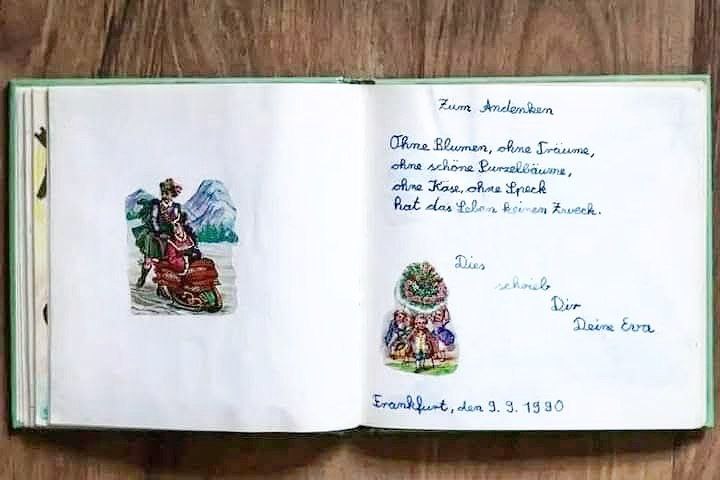 Zum Andenken
Ohne Blumen, ohne Träume,
ohne schöne Purzelbäume,
ohne Käse, ohne Speck
hat das Leben keinen Zweck.
Dies
schrieb
Dir
Deine Eva
Frankfurt, den 9. 9. 1990